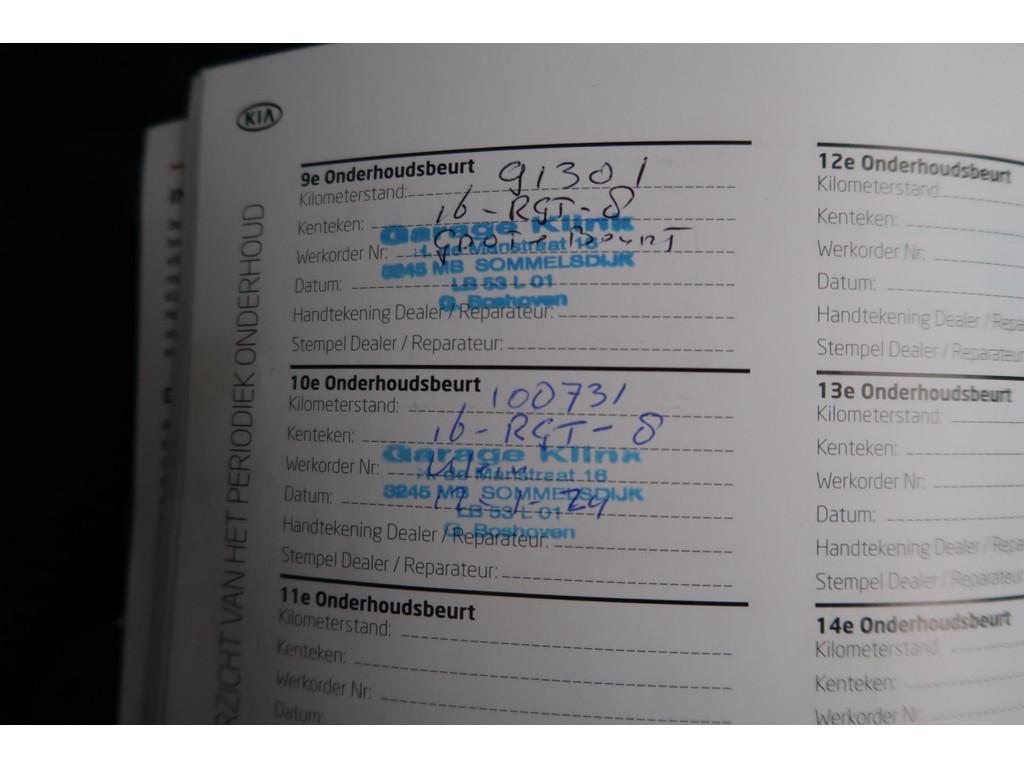 KIA
RZICHT VAN HET PERIODIEK ONDERHOUD
9e Onderhoudsbeurt
Kilometerstand: 91301
Kenteken: 16-RGT-8
Werkorder Nr: Grote Beurt
Garage Klink
3245 MB SOMMELSDIJK
Datum:
LB 53 L 01
G. Boshoven
Handtekening Dealer / Reparateur:
Stempel Dealer / Reparateur:
10e Onderhoudsbeurt
Kilometerstand: 100731
Kenteken: 16-RGT-8
Garage Klink
Werkorder Nr: Klein
Manstraat 16
Datum:
3245 MB SOMMELSDIJK
LB 53 L 01
G. Boshoven
Handtekening Dealer / Reparateur:
Stempel Dealer / Reparateur:
11e Onderhoudsbeurt
Kilometerstand:
Kenteken:
Werkorder Nr:
Datum:
12e Onderhoudsbeurt
Kilometerstand:
Kenteken:
Werkorder Nr:
Datum:
Handtekening Dealer / Repa
Stempel Dealer / Reparateur
13e Onderhoudsbeurt
Kilometerstand:
Kenteken:
Werkorder Nr:
Datum:
Handtekening Dealer / Repa
Stempel Dealer / Reparateur
14e Onderhoudsbeurt
Kilometerstand:
Kenteken:
Werkorder Nr: